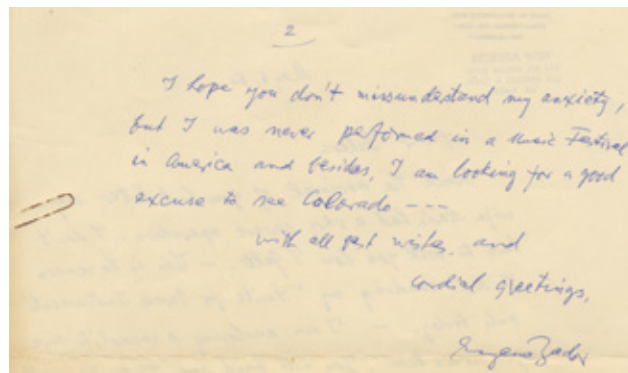 2
I hope you don't missunderstand my anxiety,
but I was never performed in a Music Festival
in America and besides, I am looking for a good
excuse to see Colorado ---
with all best wishes. and
cordial greetings,
Eugene Zador